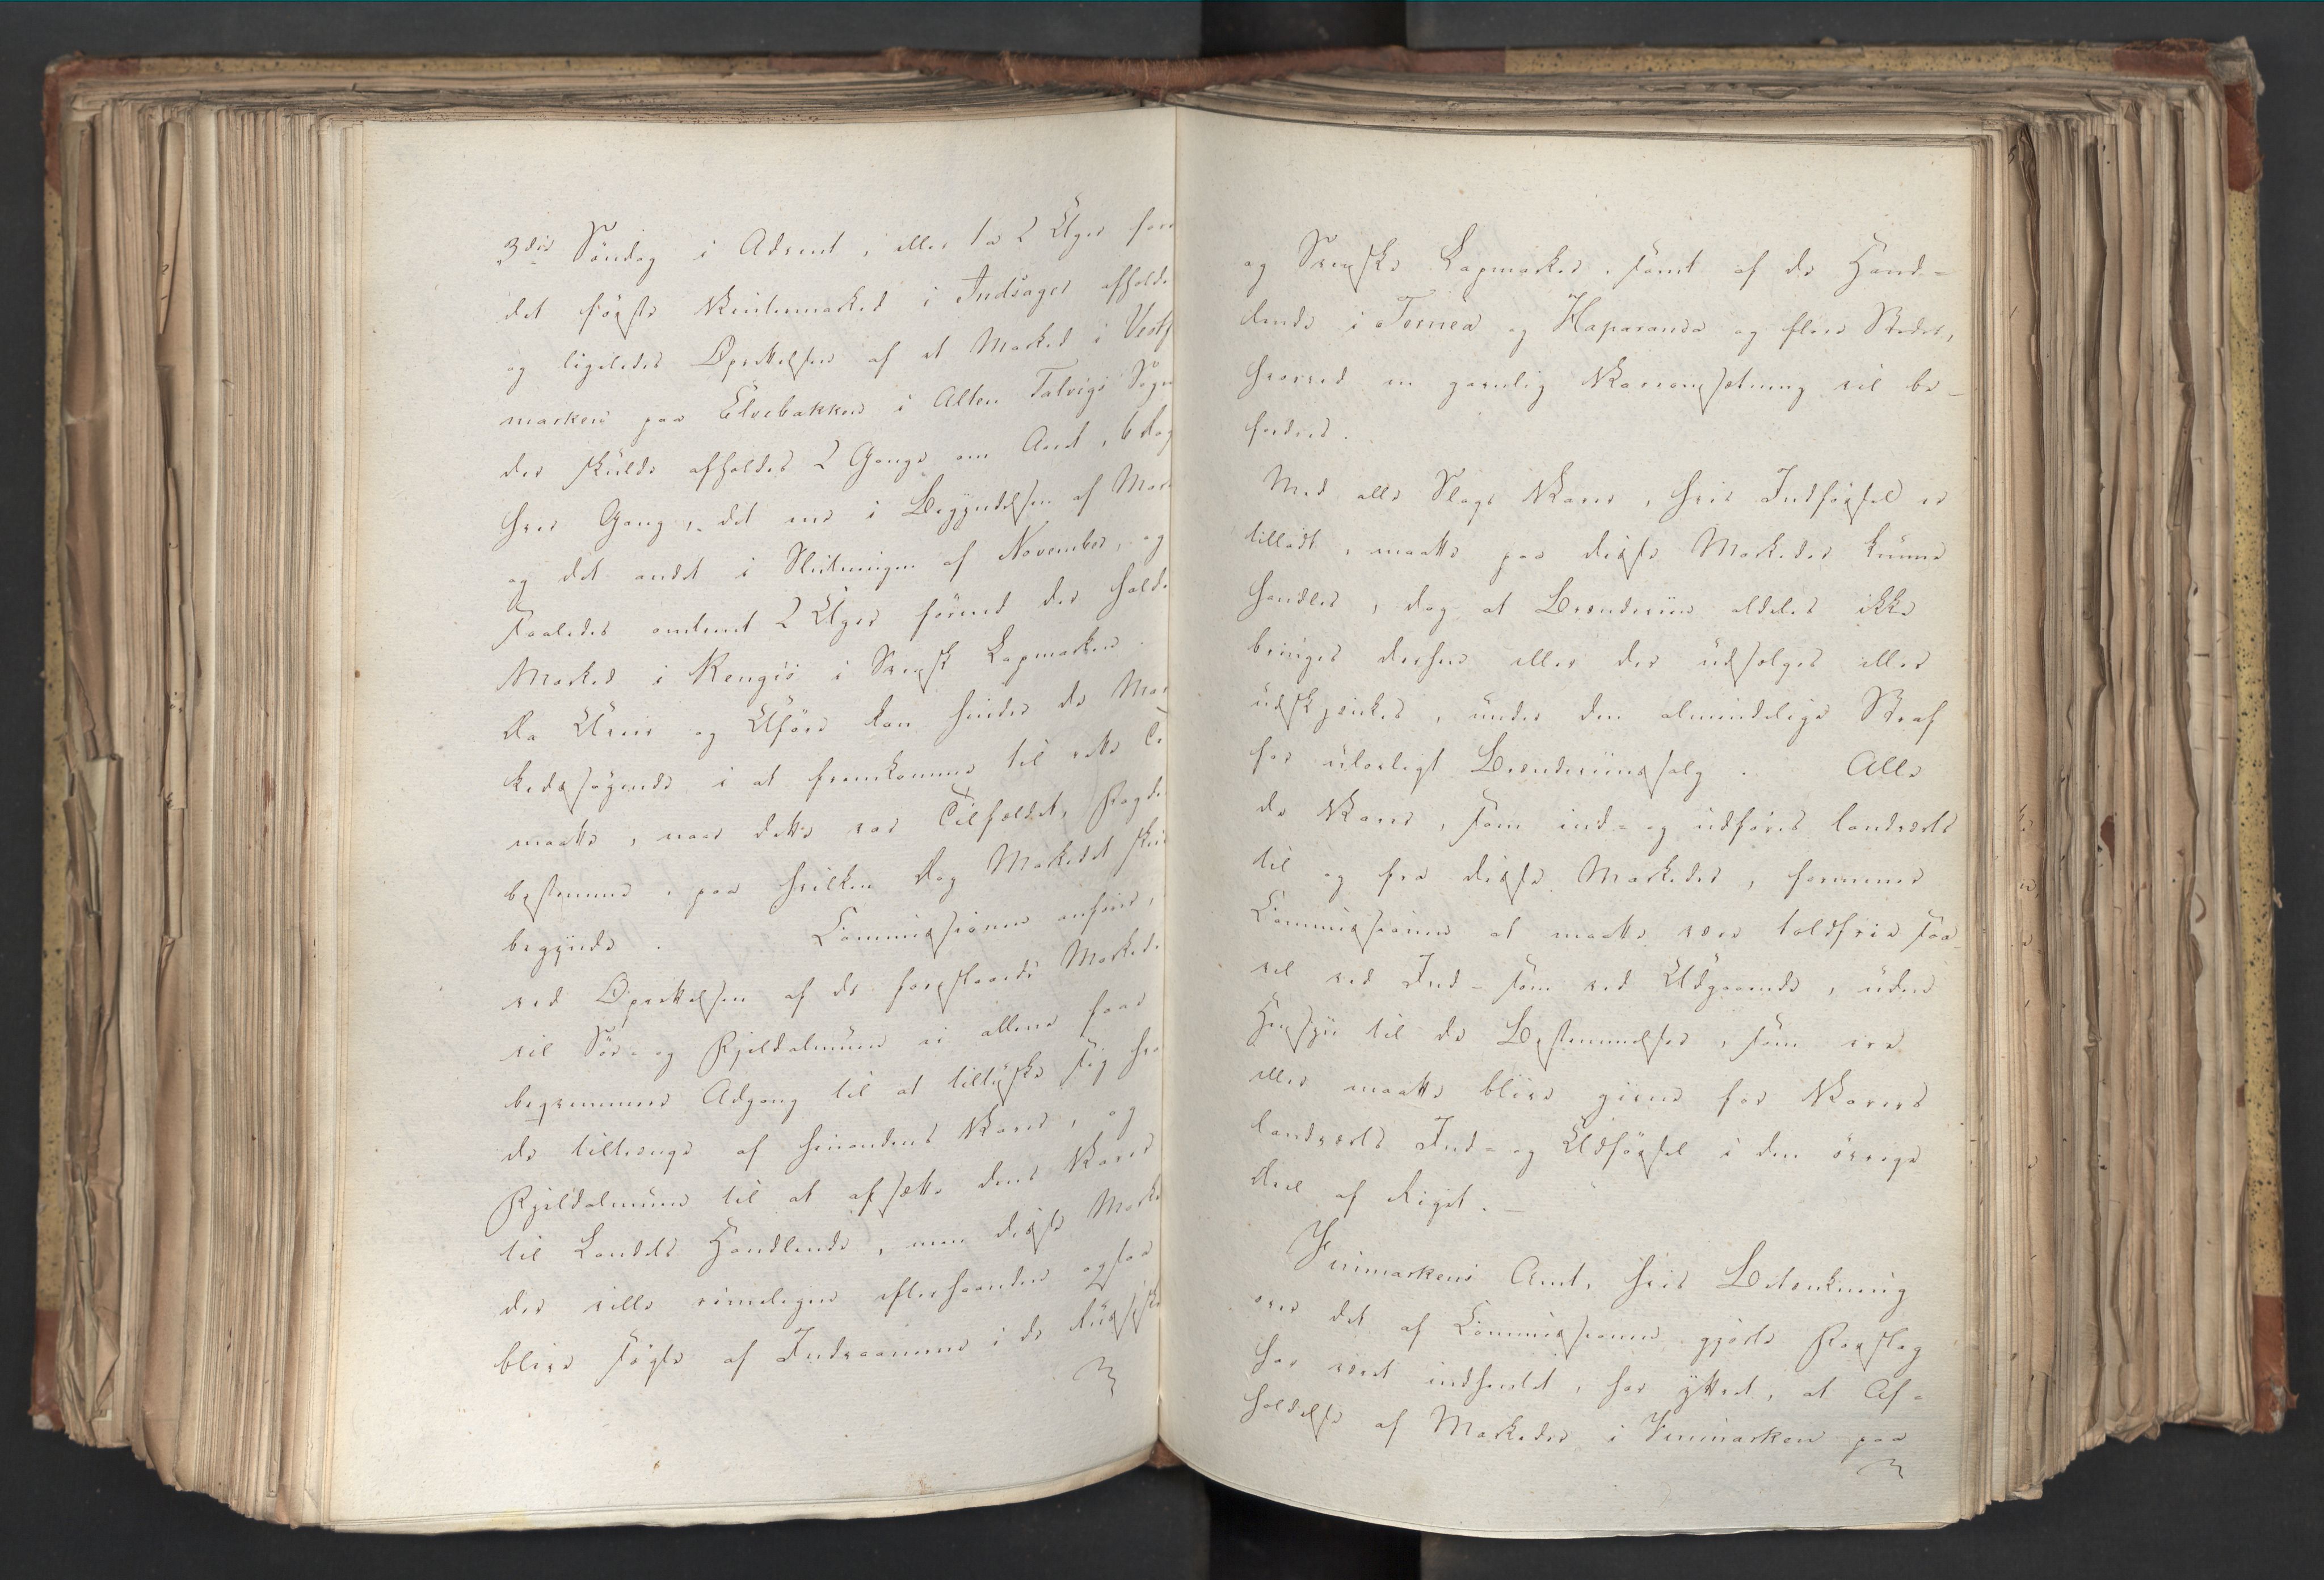 3die Søndag i Advent, eller 1 a 2 Uger før
det første Vintermarked i Indiager afholdes
og ligeledes Oprettelsen af et Marked i Vestf
marken paa Elvebakken i Alten Talvigs Sogn
der skulde afholdes 2 Gange om Aaret, 6 Dage
hver Gang, det ene i Begyndelsen af Mar
og det andet i Slutningen af November, og
saaledes omtrent 2 Uger førend der holdes
Marked i Kengis i Svensk Lapmarken.
Da Uveir og Uføre kan hindre de Mar
kedssøgende i at fremkomme til rette Ti
maatte, naar dette var Tilfældet, Fogden
bestemme, paa hvilken Dag Markedet skul
begynde. Commissionen anfører,
ved Oprettelsen af de foreslaaede Markeder
vil Søe- og Fjeldalmuen ei allene faae
beqvemmere Adgang til at tiltuske sig hva
de tiltrænge af hinandens Varer, og
Fjeldalmuen til at afsætte dens Varer
til Landets Handlende, men disse Marke
der ville rimeligen efterhaanden ogsaa
blive søgte af Indvaanerne i de Russiske
og Svenske Lapmarker, samt af de Hand-
lende i Torneå og Haparanda og flere Steder,
hvorved en gavnlig Vareomsætning vil be-
fordres.
Med alle Slags Varer, hvis Indførsel er
tilladt, maatte paa disse Markeder kunne
handles, dog at Brændeviin aldeles ikke
bringes derhen eller der udsælges eller
udskjenkes, under den almindelige Straf
for ulovligt Brændeviinssalg. Alle
de Varer, som ind- og udføres landværts
til og fra disse Markeder, formener
Commissionen at maatte være toldfrie saa-
vel ved Ind- som ved Udgaaende, uden
Hensyn til de Bestemmelser, som ere
eller maatte blive givne for Varers
landværts Ind- og Udførsel i den øvrige
Deel af Riget. -
Finmarkens Amt, hvis Betænkning
over det af Commissionen gjorte Forslag
har været indhentet, har yttret, at Af-
holdelse af Markeder i Finmarken paa